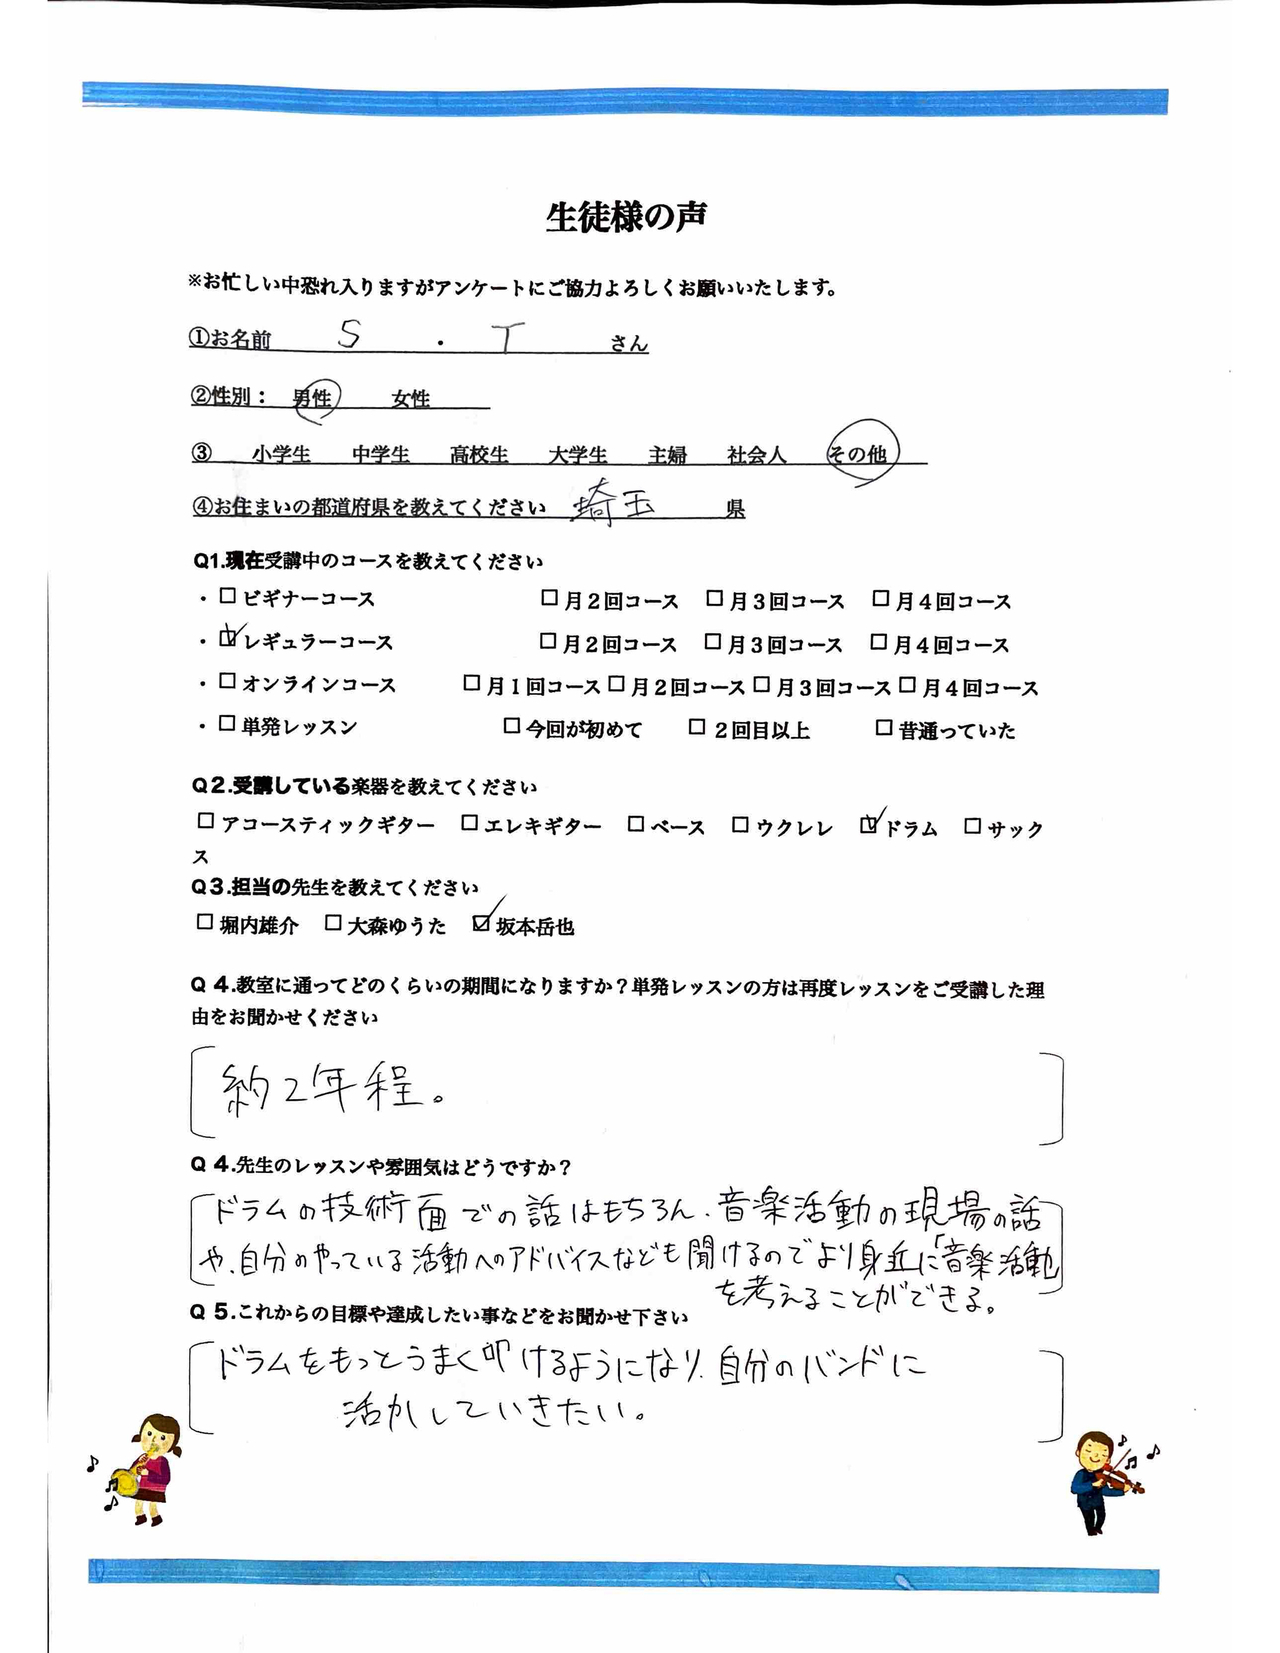 生徒様の声
※お忙しい中恐れ入りますがアンケートにご協力よろしくお願いいたします。
①お名前 S ・ T さん
②性別： 男性 女性
③ 小学生 中学生 高校生 大学生 主婦 社会人 その他
④お住まいの都道府県を教えてください 埼玉 県
Q1.現在受講中のコースを教えてください
・☐ビギナーコース ☐月２回コース ☐月３回コース ☐月４回コース
・☑レギュラーコース ☐月２回コース ☐月３回コース ☐月４回コース
・☐オンラインコース ☐月１回コース☐月２回コース☐月３回コース☐月４回コース
・☐単発レッスン ☐今回が初めて ☐２回目以上 ☐昔通っていた
Q２.受講している楽器を教えてください
☐アコースティックギター ☐エレキギター ☐ベース ☐ウクレレ ☑ドラム ☐サック
ス
Q３.担当の先生を教えてください
☐堀内雄介 ☐大森ゆうた ☑坂本岳也
Q ４.教室に通ってどのくらいの期間になりますか？単発レッスンの方は再度レッスンをご受講した理
由をお聞かせください
約2年程。
Q ４.先生のレッスンや雰囲気はどうですか？
ドラムの技術面での話はもちろん、音楽活動の現場の話
や、自分のやっている活動へのアドバイスなども聞けるのでより身近に「音楽活動
を考えることができる。
Q ５.これからの目標や達成したい事などをお聞かせ下さい
ドラムをもっとうまく叩けるようになり、自分のバンドに
活かしていきたい。